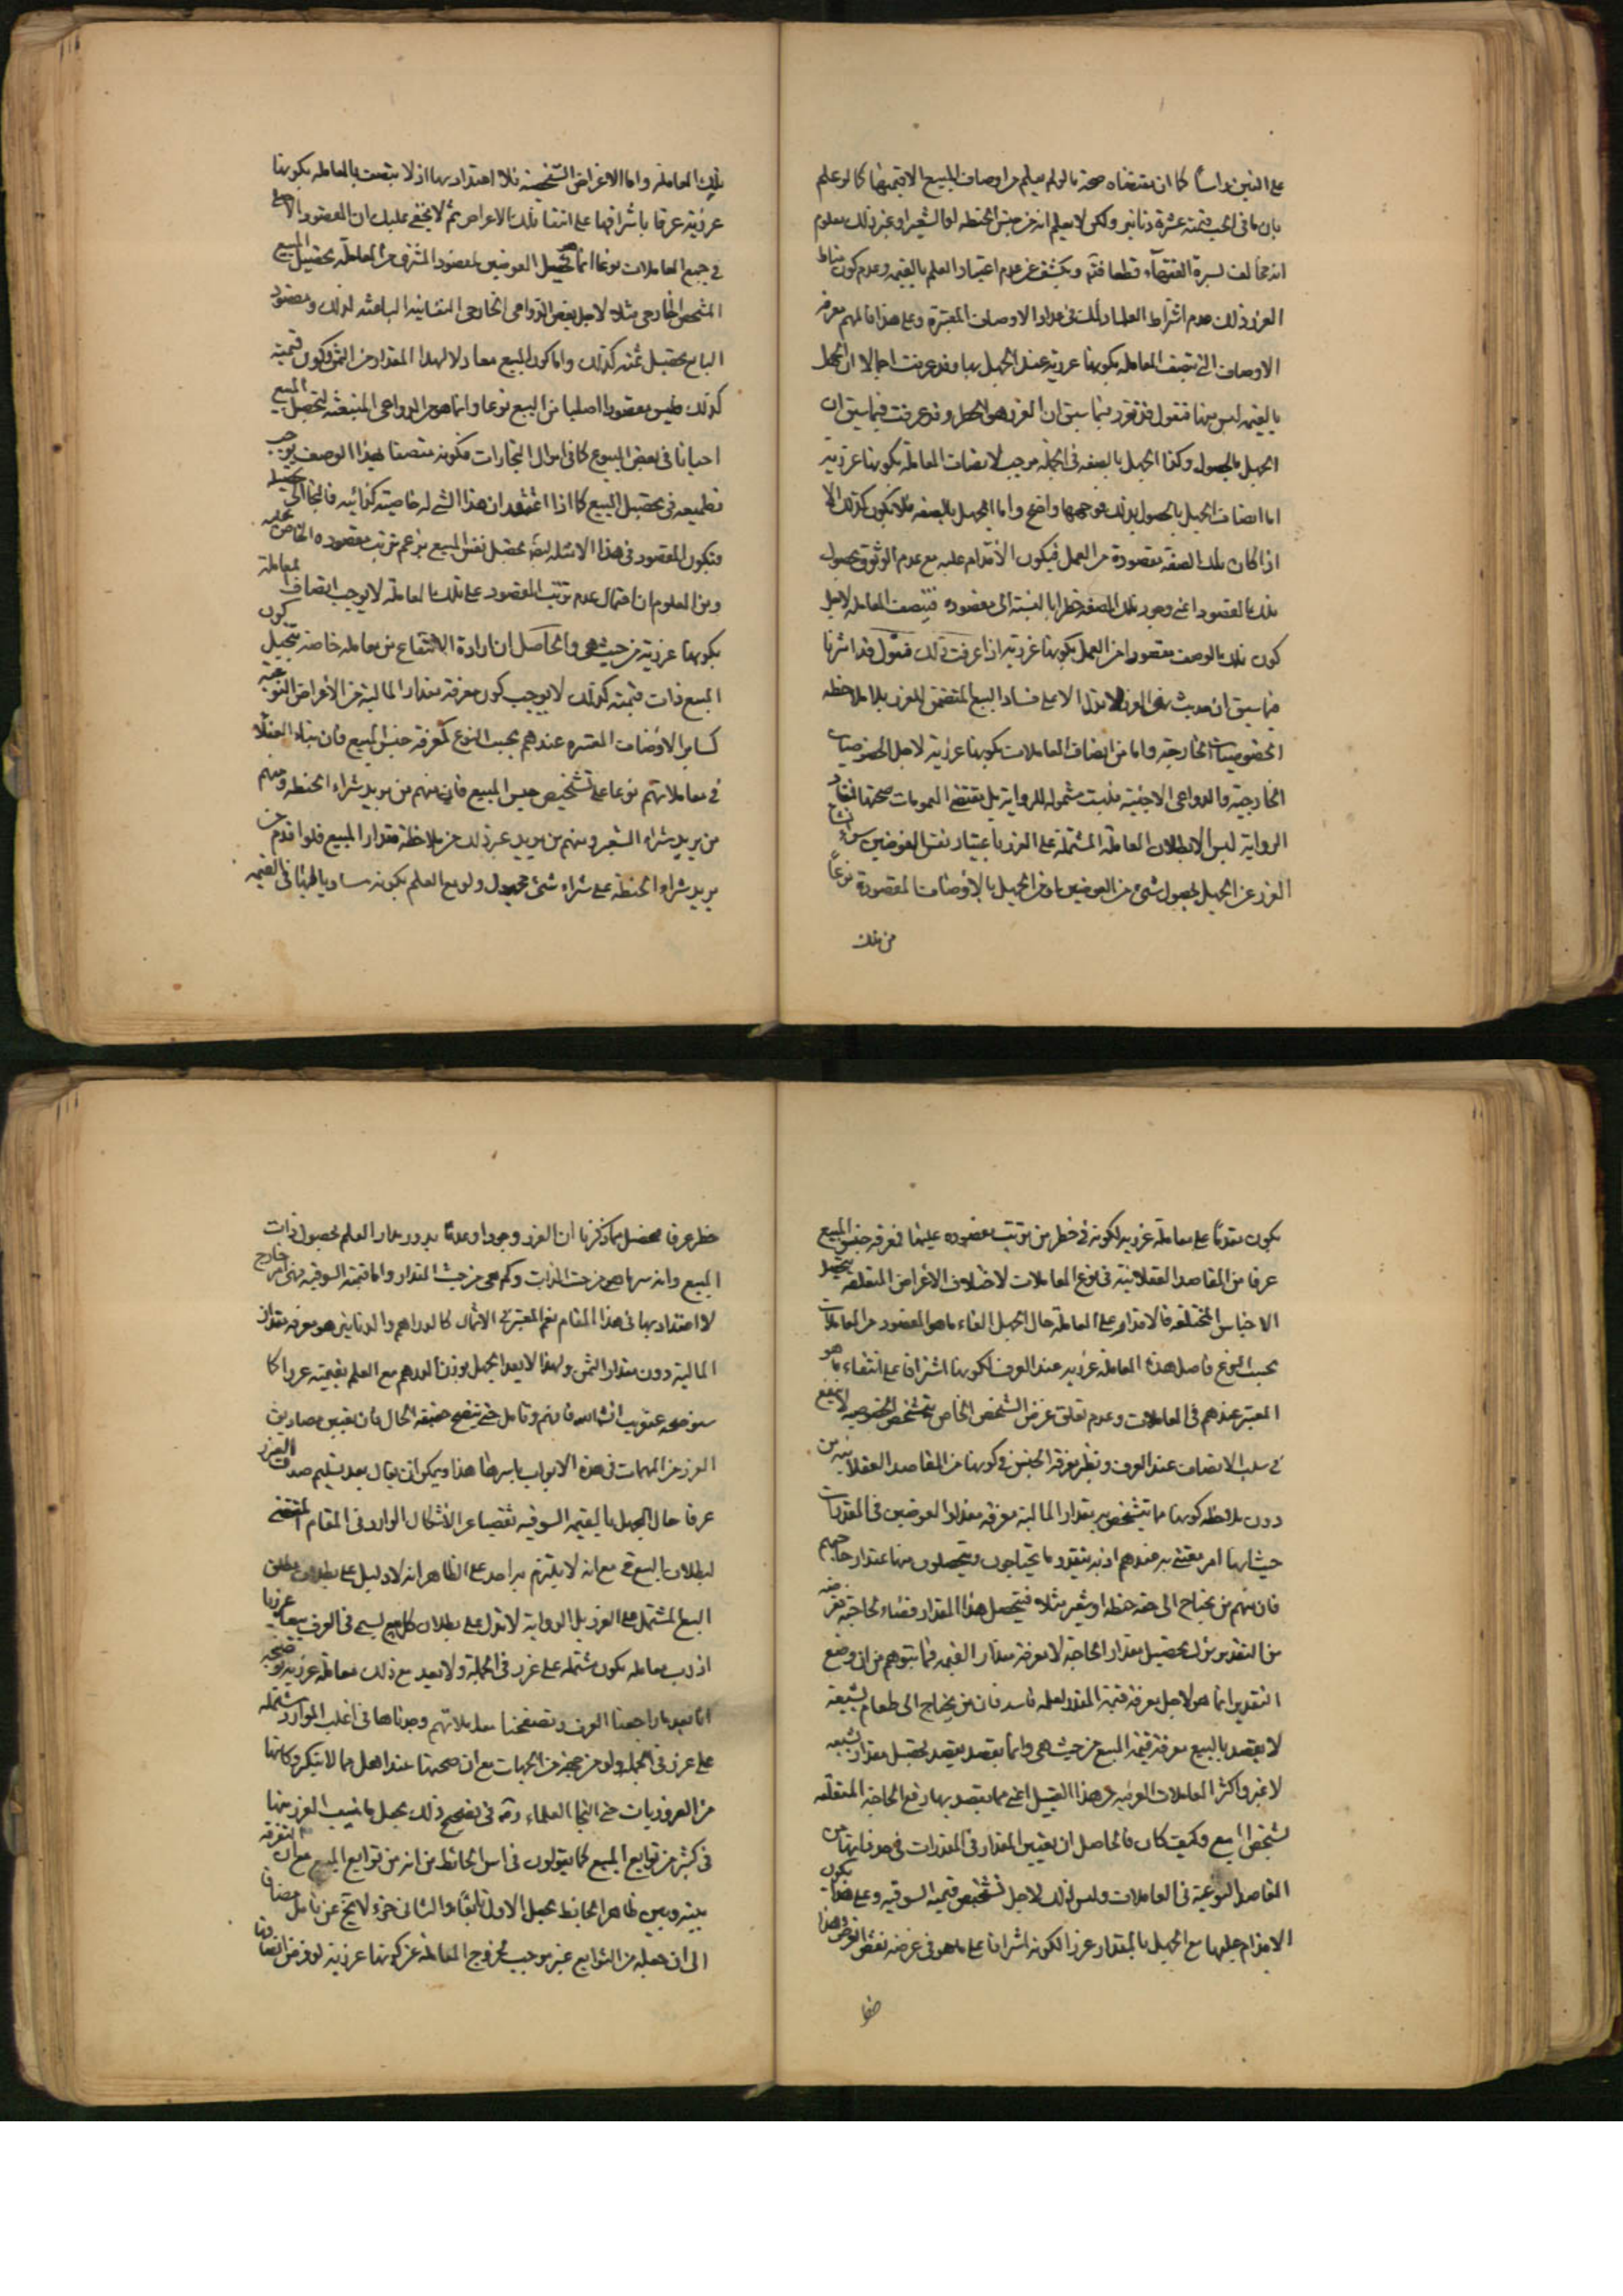 على الغبن راسا كما ان مقتضاه صحة ما لو لم يعلم من اوصاف المبيع الا قيمتها كما لو علم
بان ما فى الحب قيمته عشرة دنانير ولكن لا يعلم انه من جنس الحنطة او الشعير او غير ذلك معلوم
انه مخالف لسيرة الفقهاء قطعا فتم ويكشف عن عدم اعتبار العلم بالقيمة وعدم كون مناط
الغرر ذلك عدم اشتراط العلماء ذلك فى عداد الاوصاف المعتبرة وعلى هذا فالمهم معرفة
الاوصاف التى تتصف المعاملة بكونها غررية عند الجهل بها وقد عرفت اجمالا ان الجهل
بالقيمة ليس منها فنقول قد تقرر فيما سبق ان الغرر هو الخطر وقد عرفت فيما سبق ان
الجهل بالحصول وكذا الجهل بالصفة فى الجملة موجب لاتصاف المعاملة بكونها غررية
اما اتصاف الجهل بالحصول بذلك فوجهها واضح واما الجهل بالصفة فلا يكون كذلك الا
اذا كان تلك الصفة مقصودة من العمل فيكون الاقدام عليه مع عدم الوثوق بحصول
ذلك المقصود اعنى وجود تلك الصفة خطرا بالنسبة الى مقصوده فتتصف المعاملة لاجل
كون ذلك الوصف مقصودا من العمل بكونها غررية اذا عرفت ذلك فنقول قد اشرنا
فيما سبق ان حديث نفى الغرر لا تدل الا على فساد البيع المتضمن للغرر بلا ملاحظة
الخصوصيات الخارجة واما من اتصاف المعاملات بكونها غررية لاجل الخصوصيات
الخارجية والدواعى الاجنبية فليست مشمولة للرواية بل يقتضى العمومات صحتها فمفاد
الرواية ليس الا بطلان المعاملة المشتملة على الغرر باعتبار نفس العوضين سواء نشأ
الغرر عن الجهل بحصول شىء من العوضين او من الجهل بالاوصاف المقصودة نوعا
من تلك
تلك المعاملة واما الاغراض الشخصية فلا اعتداد بها اذ لا تتصف بالمعاملة بكونها
غررية عرفا باشرافها على انتفاء تلك الاغراض ثم لا يخفى عليك ان المقصود الاصلى
فى جميع المعاملات نوعا انما هو تحصيل العوضين فمقصود المشترى من المعاملة تحصيل المبيع
المشخص الخارجى مثلا لاجل بعض الدواعى الخارجى النفسانية الباعثة لذلك ومقصود
البايع تحصيل ثمنه كذلك واما كون المبيع معادلا لهذا المقدار من الثمن وكون قيمته
كذلك فليس مقصودا اصليا من البيع نوعا وانما هو من الدواعى المنبعثة لتحصيل المبيع
احيانا فى بعض البيوع كما فى اموال التجارات فكونه متصفا بهذا الوصف يوجب
تطميعه فى تحصيل المبيع كما اذا اعتقد ان هذا الشىء له خاصية كذائية
فيكون المقصود فى هذا الامثلة ايضا تحصيل نفس المبيع بزعم ترتب مقصوده الخاص عليه
ومن المعلوم ان احتمال عدم ترتب المقصود على تلك المعاملة لا يوجب اتصاف المعاملة
بكونها غررية من حيث هى والحاصل ان ارادة الانتفاع من معاملة خاصة بتحصيل كون
المبيع ذات قيمته كذلك لا يوجب كون معرفة مقدار المالية من الاغراض النوعية
كساير الاوصاف المعتبرة عندهم بحسب النوع كمعرفة جنس المبيع فان بناء العقلاء
فى معاملاتهم نوعا على تشخيص جنس المبيع فان منهم من يريد شراء الحنطة ومنهم
من يريد شراء الشعير ومنهم من يريد غير ذلك من ملاحظة مقدار المبيع فلو اقدم من
يريد شراء الحنطة على شراء شىء مجهول ولو مع العلم بكونه مساويا لها فى القيمة
يكون مقدما على معاملة غررية لكونه فى خطر من ترتب مقصوده عليها فمعرفة جنس المبيع
عرفا من المقاصد العقلائية فى نوع المعاملات لاختلاف الاغراض المتعلقة بتحصيل
الاجناس المختلفة فالاقدام على المعاملة حال الجهل الغاء ما هو المقصود من المعاملات
بحسب النوع فاصل هذه المعاملة غررية عند العرف لكونها اشرافا على انتفاء ما هو
المعتبر عندهم فى المعاملات وعدم تعلق غرض الشخص الخاص بتشخص الخصوصية لا ينفع
فى سلب الاتصاف عند العرف ونظير معرفة الجنس فى كونها من المقاصد العقلائية من
دون ملاحظة كونها مما يتشخص به مقدار المالية معرفة مقدار العوضين فى المقدرات
حيث انها امر معتنى به عندهم اذ به يتقدر ما يحتاجون ويتحصلون منها بمقدار حاجتهم
فان منهم من يحتاج الى حقة حنطة او شعير مثلا فيتحصل هذا المقدار قضاء لحاجته فغرضه
من التقدير نوعا تحصيل مقدار الحاجة لا معرفة مقدار القيمة فما يتوهم من ان وضع
التقدير انما هو لاجل معرفة قيمة المقدر لعله فاسد فان من يحتاج الى طعام يشبعه
لا يقصد بالبيع معرفة قيمة المبيع من حيث هى وانما يقصد بقصد تحصيل مقدار يشبعه
لا غير واكثر المعاملات العرفية من هذا القبيل اعنى مما يقصد بها رفع الحاجة المتعلقة
بشخص المبيع وكيف كان فالحاصل ان تعيين المقدار فى المقدرات فى حد ذاتها من
المقاصد النوعية فى المعاملات وليس ذلك لاجل تشخيص قيمته السوقية وعلى هذا يكون
الاقدام عليها مع الجهل بالمقدار غررا لكونه اشرافا على ما هو فى عرضة نقض الغرض وهذا
خطر
خطر عرفا فحصل مما ذكرنا ان الغرر وجودا وعدما يدور مدار العلم بحصول ذات
المبيع وانه مما هى من حيث الذات وكم هى من حيث المقدار واما قيمته السوقية فهى امر خارج
لا اعتداد بها فى هذا المقام نعم المعتبر فى الاثمان كالدراهم والدنانير هو معرفة مقدار
المالية دون مقدار الثمن ولهذا لا يعد الجهل بوزن الدرهم مع العلم بقيمته غررا كما
سنوضحه عنقريب انشاء الله فافهم وتامل حتى يتضح حقيقة الحال فان تعيين مصاديق
الغرر من المهمات فى هذه الابواب باسرها هذا ويمكن ان يقال بعد تسليم صدق الغرر
عرفا حال الجهل بالقيمة السوقية تفصيا عن الاشكال الوارد فى المقام المقتضى
لبطلان البيع فى مع انه لا يلتزم به احد على الظاهر انه لا دليل على بطلان مطلق
البيع المشتمل على الغرر بل الرواية لا تدل على بطلان كل بيع يسمى فى العرف بيعا غرريا
اذ رب معاملة يكون مشتملة على غرر فى الجملة ولا يعد مع ذلك معاملة غررية توضيحه
انا بعد ما راجعنا العرف وتصفحنا معاملاتهم وجدناها فى اغلب الموارد مشتملة
على غرر فى الجملة ولو من جهة من الجهات مع ان صحتها عند اهل مما لا ينكر وكانها
من الضروريات حتى التجا العلماء ره فى تصحيح ذلك بجعل ما يتسبب الغرر منها
فى كثير من توابع المبيع كما يقولون فى اس الحائط من انه من توابع المبيع مع ان التفرقة
بينه وبين ظاهر الحائط بجعل الاول تابعا والثانى جزء لا يخ عن تامل مضافا
الى ان جعله من التوابع غير موجب لخروج المعاملة عن كونها غررية لو فرض اتصافها